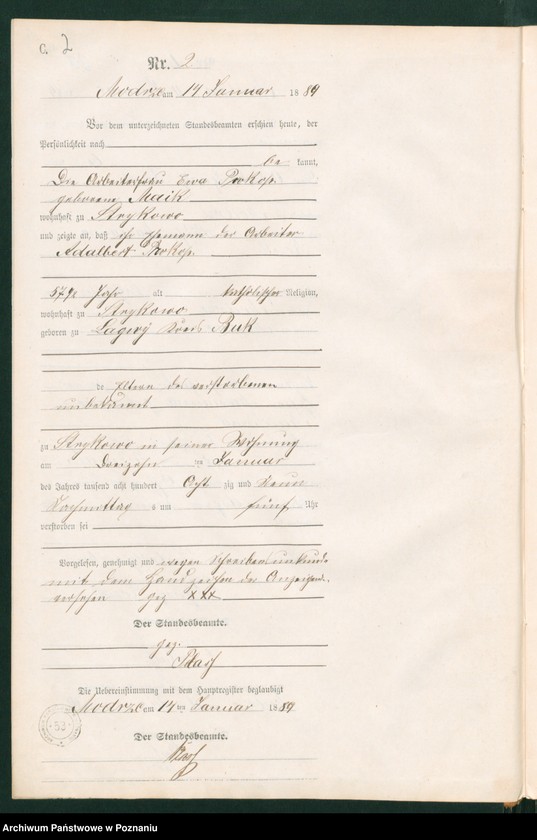 C. 2
Nr. 2
Modrze am 14 Januar 1889
Vor dem unterzeichneten Standesbeamten erschien heute, der
Persönlichkeit nach
be kannt,
Die Arbeiterfrau Ewa Prokop
geborene
wohnhaft zu Strykowo
und zeigte an, daß ihr Ehemann der Arbeiter
Adalbert Prokop
57 1/2 Jahr alt katholischer Religion,
wohnhaft zu Strykowo
geboren zu Kreis Buk
de Eltern des verstorbenen
unbekannt
zu Strykowo in seiner Wohnung
am Dreizehn ten Januar
des Jahres tausend acht hundert Acht zig und Neun
Nachmittag s um fünf Uhr
verstorben sei
Vorgelesen, genehmigt und wegen Schreibensunkunde
mit dem Handzeichen der
versehen gez XXX
Der Standesbeamte.
gez.
Die Uebereinstimmung mit dem Hauptregister beglaubigt
Modrze am 14 ten Januar 1889
63
Der Standesbeamte.
Archiwum Państwowe w Poznaniu